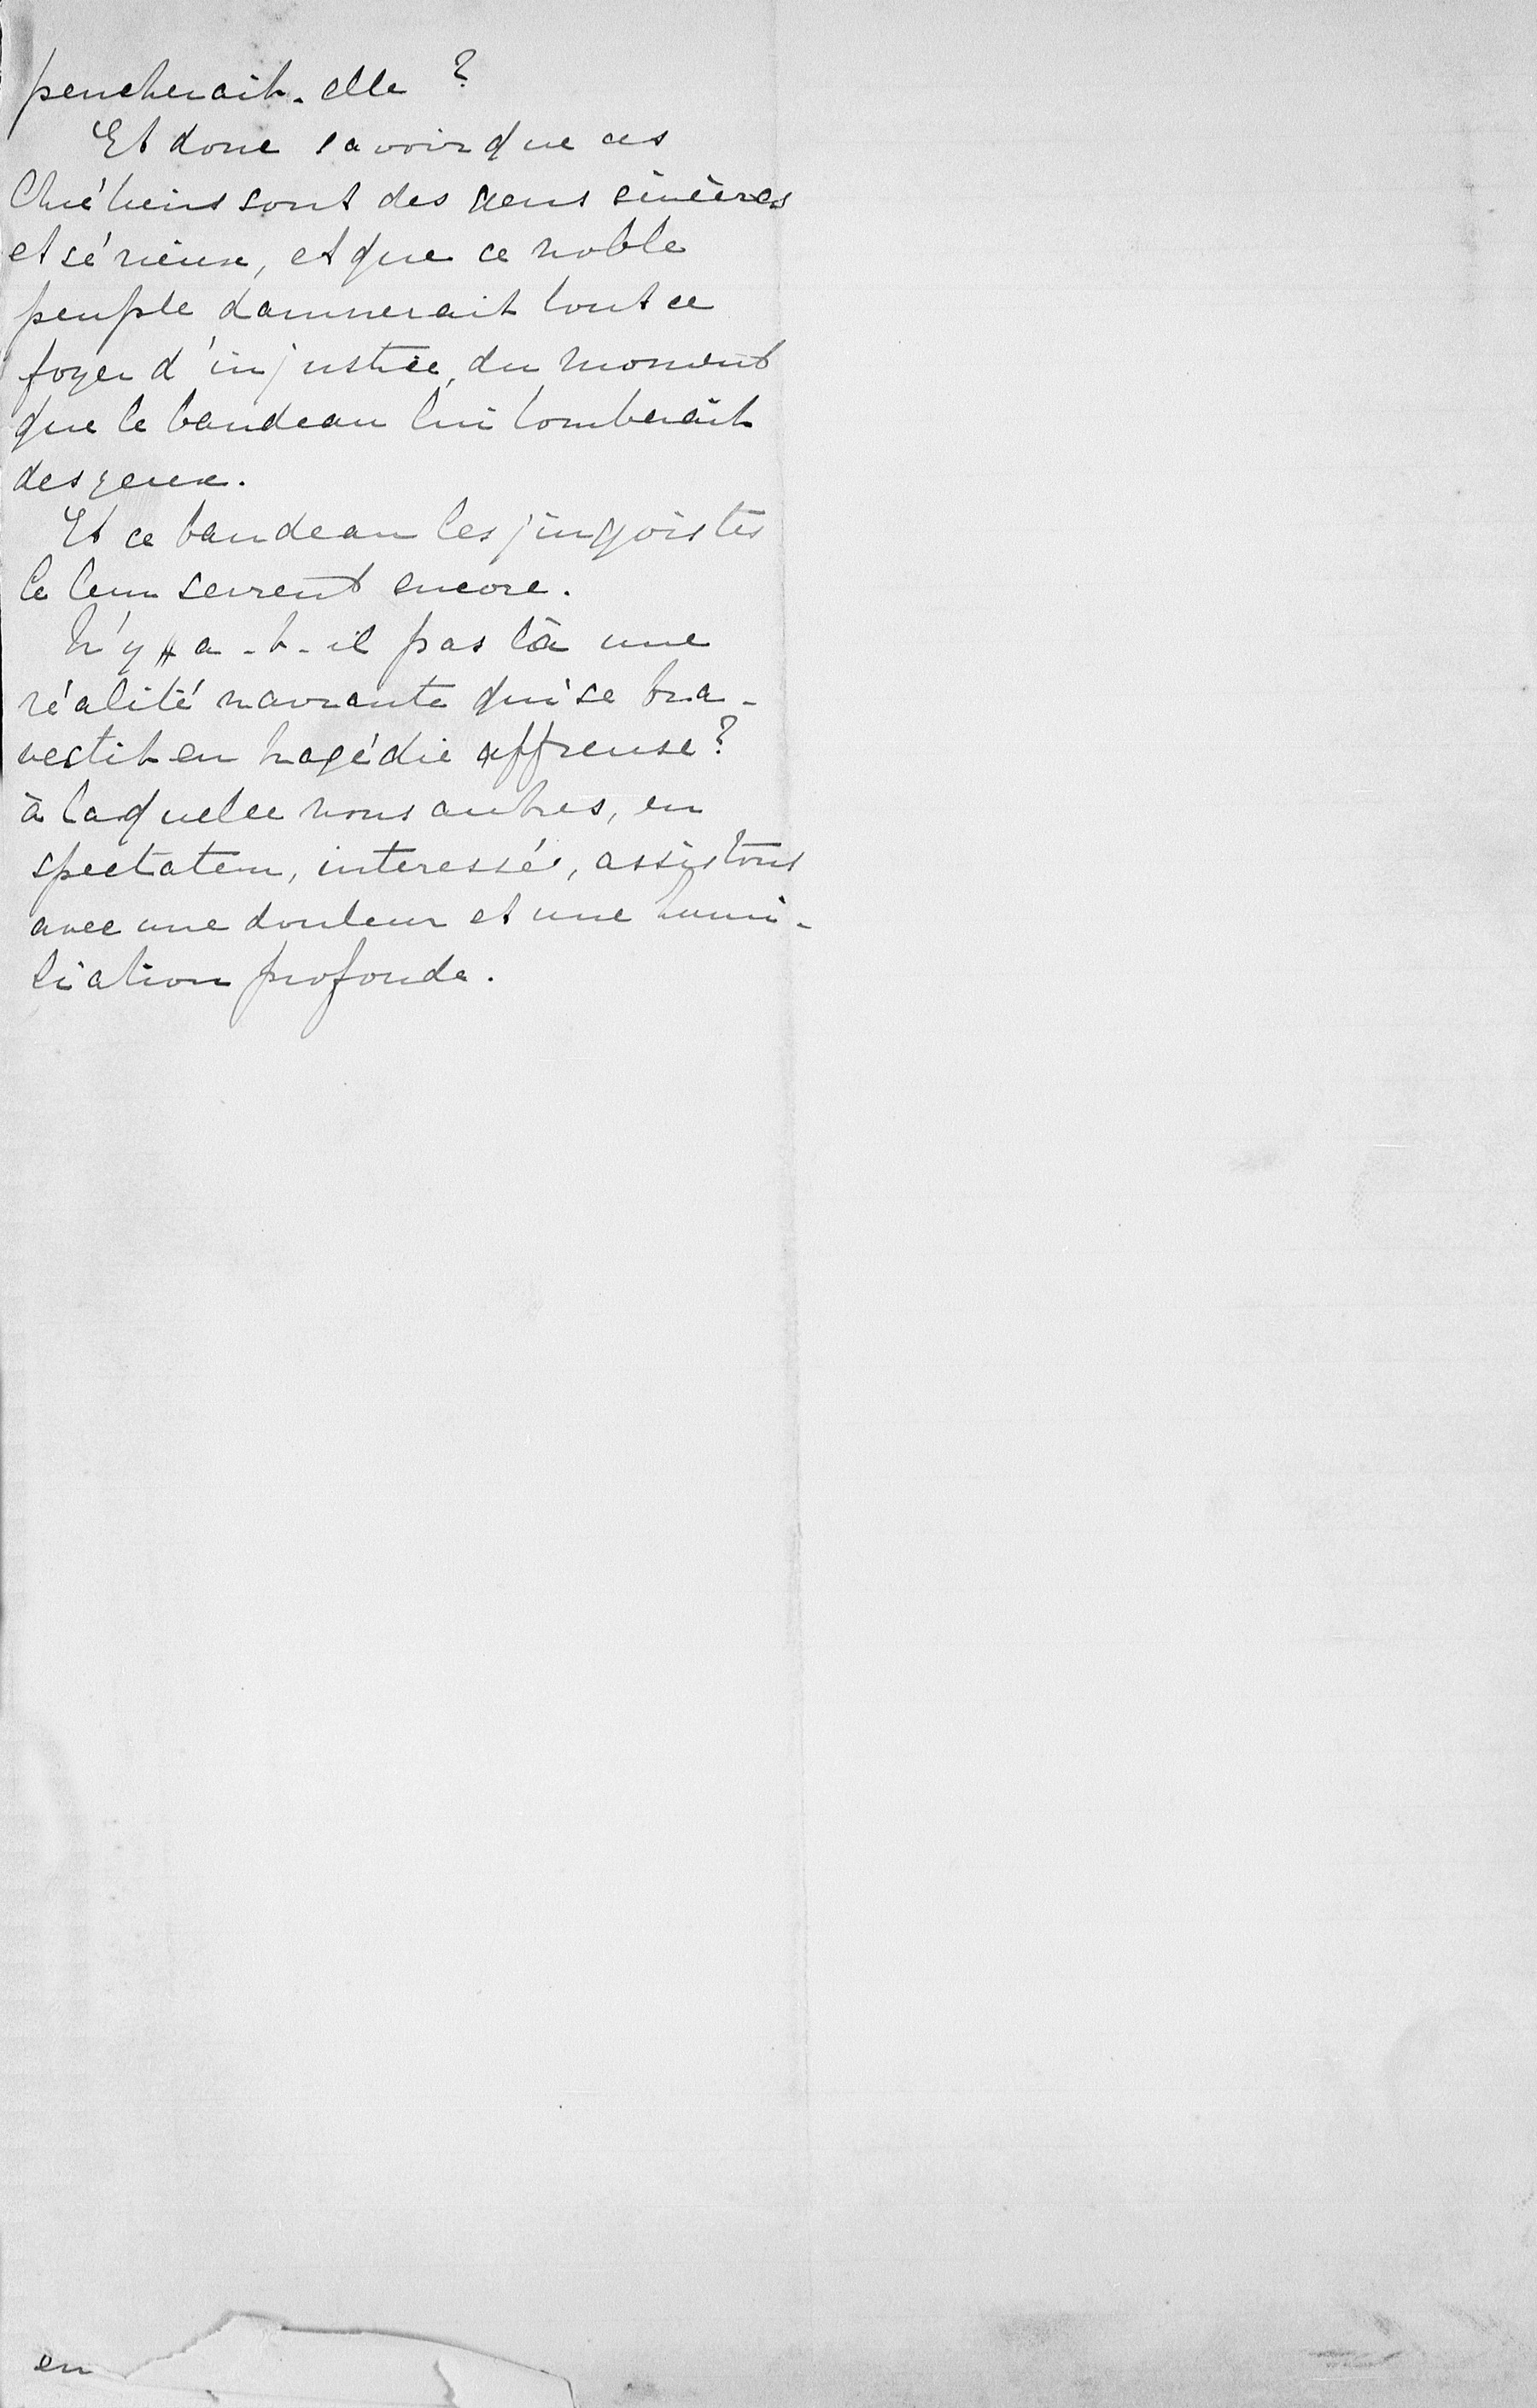 pencherait-elle ?
Et donc savoir que ces
Chrétiens sont des gens sincères
et sérieux, et que ce noble
peuple damnerait tout ce
foyer d'injustice, du moment
que le bandeau lui tomberait
des yeux.
Et ce bandeau les jingoistes
le leur serrent encore.
N'y a-t-il pas là une
réalité navrante qui se tra-
vestit en tragédie affreuse ?
à laquelle nous autres, en
spectateur, interessés, assistons
avec une douleur et une humi-
liation profonde.
en